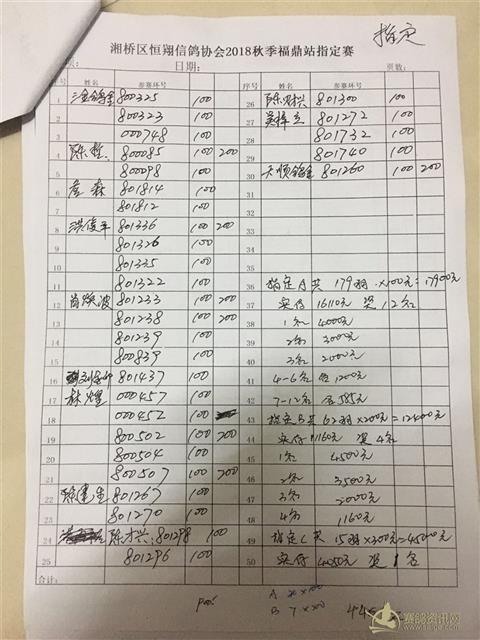 指定
湘桥区恒翔信鸽协会2018秋季福鼎站指定赛
日期: 页数:
序号 姓名 参赛环号 序号 姓名 参赛环号
1 800325 100
2 800323 100
3 000748 100
4 陈哲 800085 100 200
5 800098 100
6 詹森 801814 100
7 801812 100
8 洪俊平 801336 100 200
9 801326 100
10 801335 100
11 801322 100
12 肖焕波 801233 100 200
13 801238 100 200
14 801239 100
15 800839 100
16 801437 100
17 林耀 000457 100
18 000452 100
19 800502 100 200
20 800504 100
21 800507 100 200
22 801267 100
23 801270 100
24 陈才兴 801298 100
25 801296 100
合计:
26 陈才兴 801300 100
27 801272 100
28 801732 100
29 801740 100
30 天顺鸽舍 801260 100 200
31
32
33
34
35
36 指定A共 179羽 ×100元=17900元
37 实付 16110元 奖12名
38 1名 4000元
39 2名 3000元
40 3名 2000元
41 4-6名 各1200元
42 7-12名 各585元
43 指定B共 62羽×200元=12400元
44 实付11160元 奖4名
45 1名 4500元
46 2名 3500元
47 3名 2000元
48 4名 1160元
49 指定C共 15羽×300元=4500元
50 实付4050元 奖1名
赛鸽资讯网